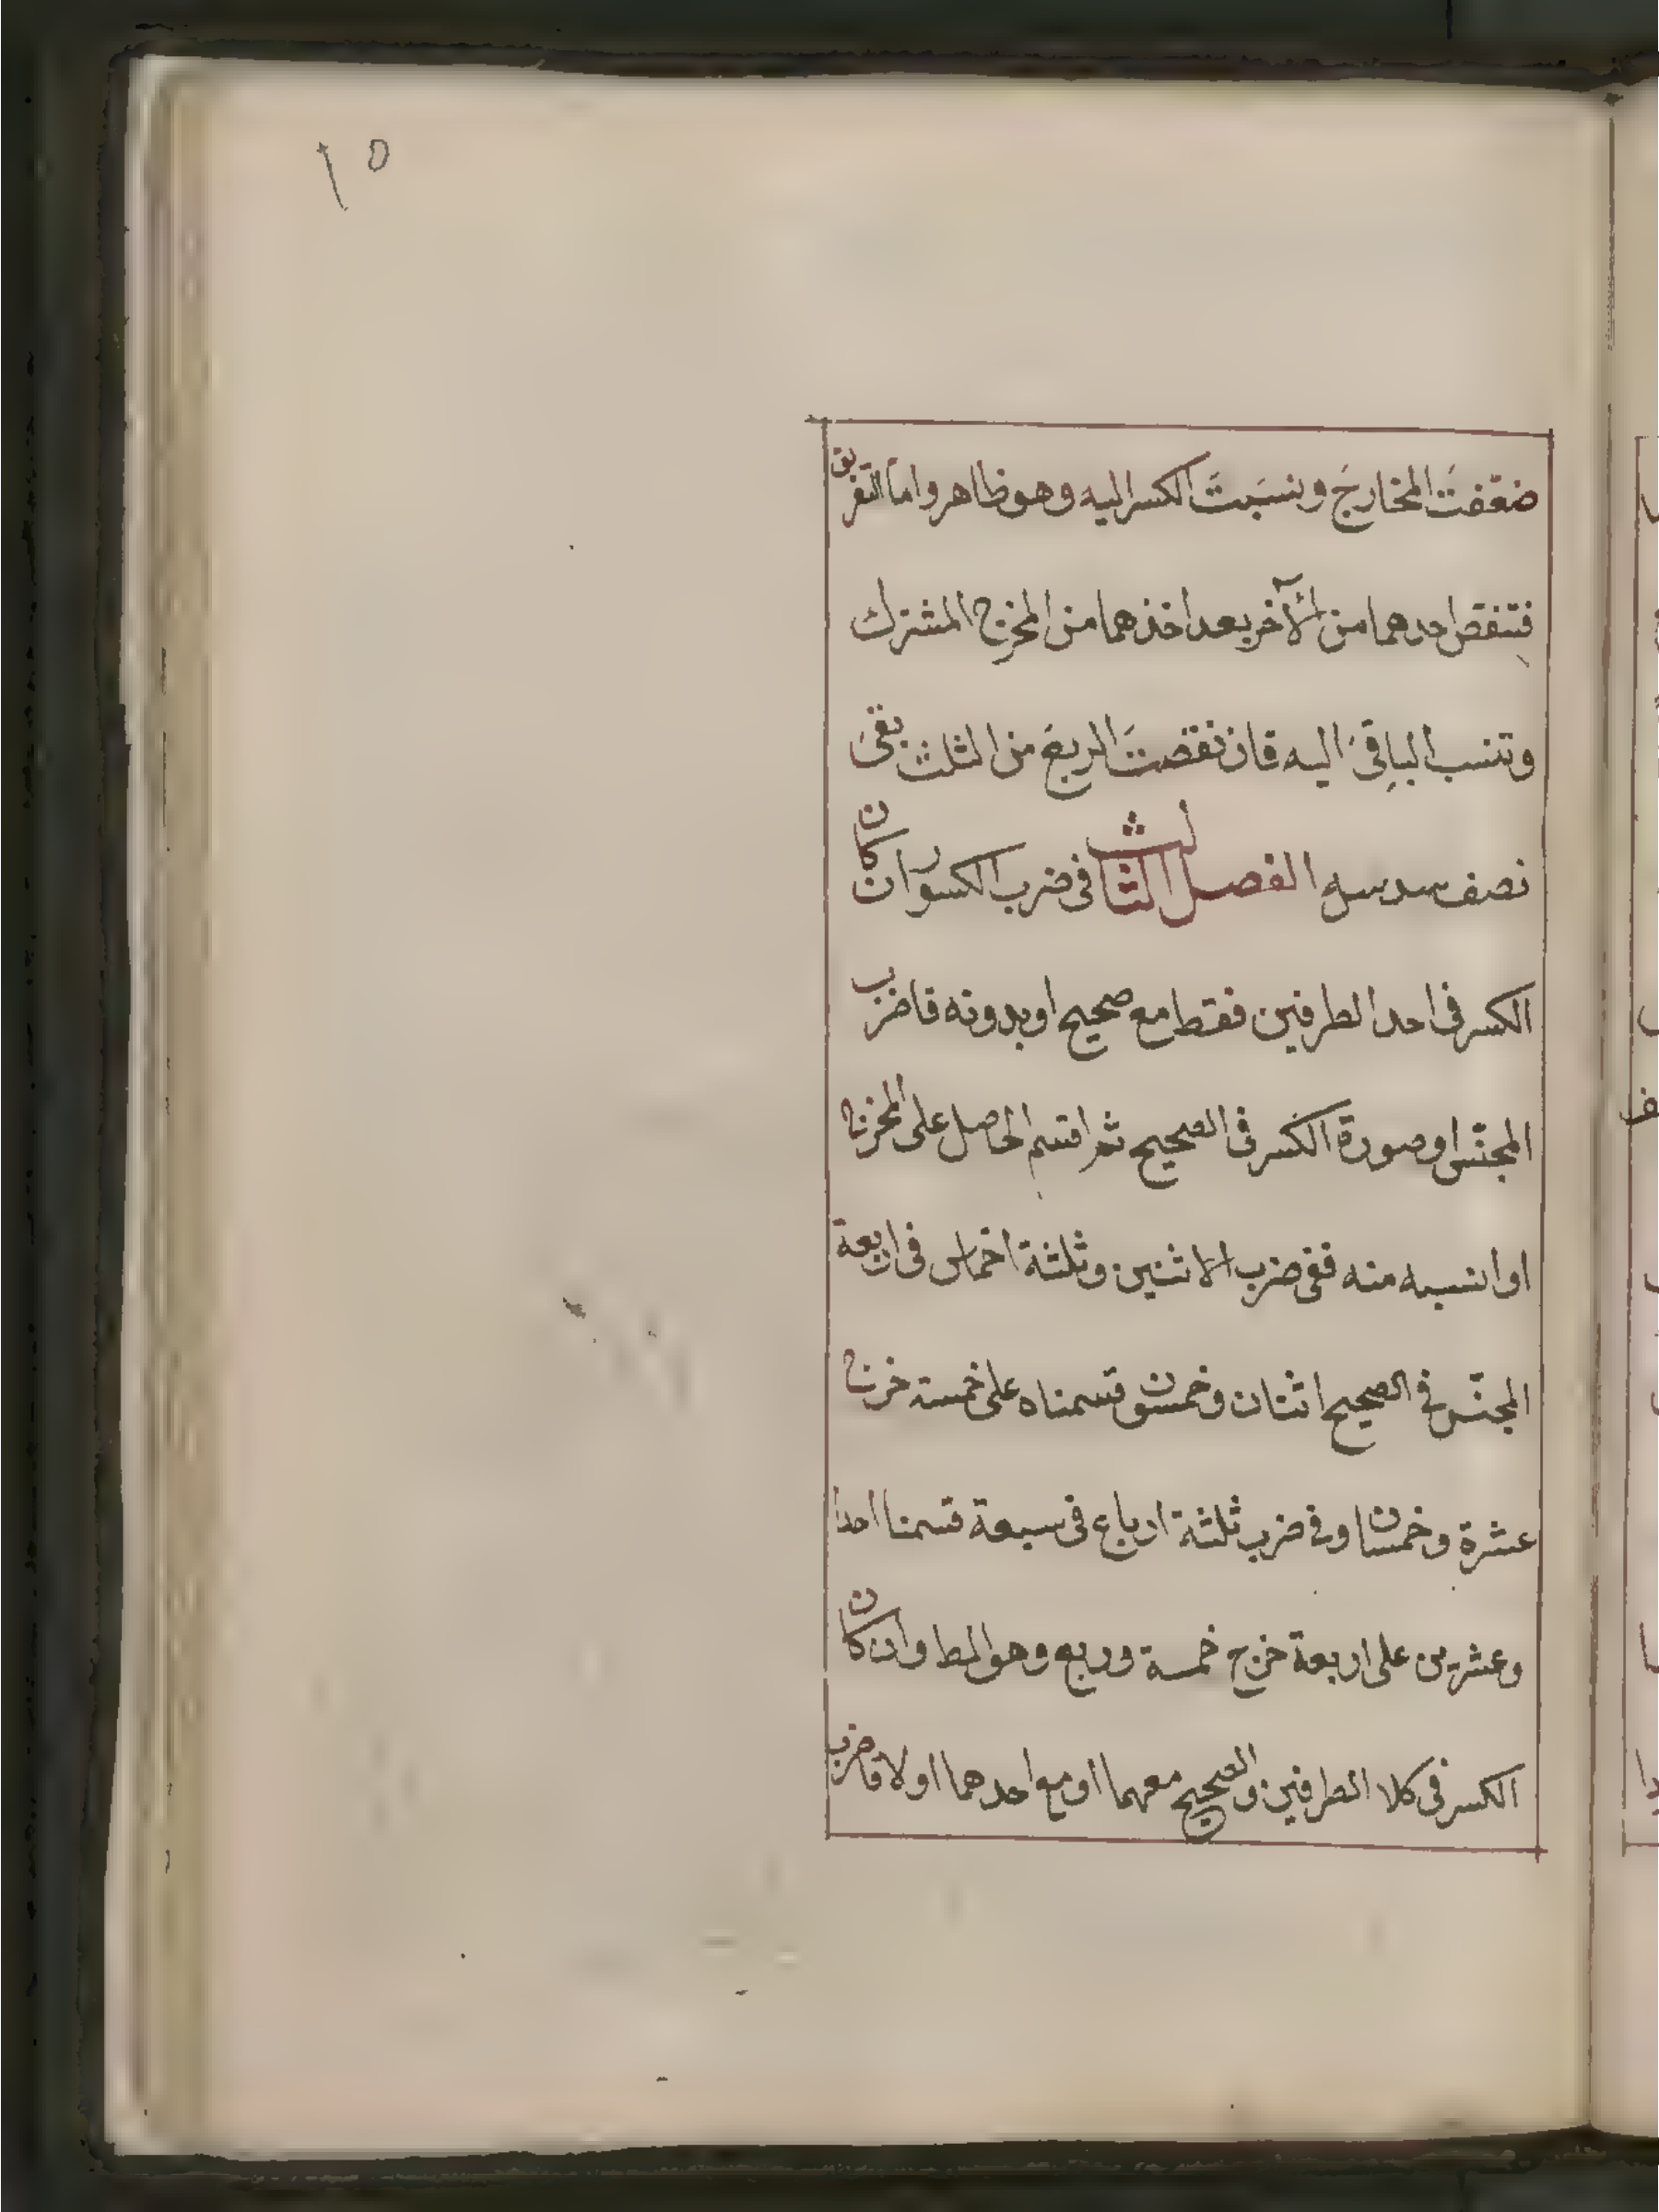 ١٥
ضعّفتَ المخارجَ ونسَبتَ الكسر اليه وهو ظاهر واما التفريق
فتنقص احدهما من الآخر بعد اخذهما من المخرج المشترك
وتنسب الباقى اليه فان نقصتَ الربعَ من الثلث بقى
نصف سدس الفصل الثالث فى ضرب الكسور ان كان
الكسر فى احد الطرفين فقط مع صحيح او بدونه فاضرب
المجنّس او صورة الكسر فى الصحيح ثم اقسم الحاصل على المخرج
او انسبه منه ففى ضرب الاثنين وثلثة اخماس فى اربعة
المجنّس فى الصحيح اثنان وخمسون قسمناه على خمسة خرج
عشرة وخمسان وفى ضرب ثلثة ارباع فى سبعة قسمنا احدا
وعشرين على اربعة خرج خمسة وربع وهو المط وان كان
الكسر فى كلا الطرفين والصحيح معهما او مع احدهما اولا فاضرب